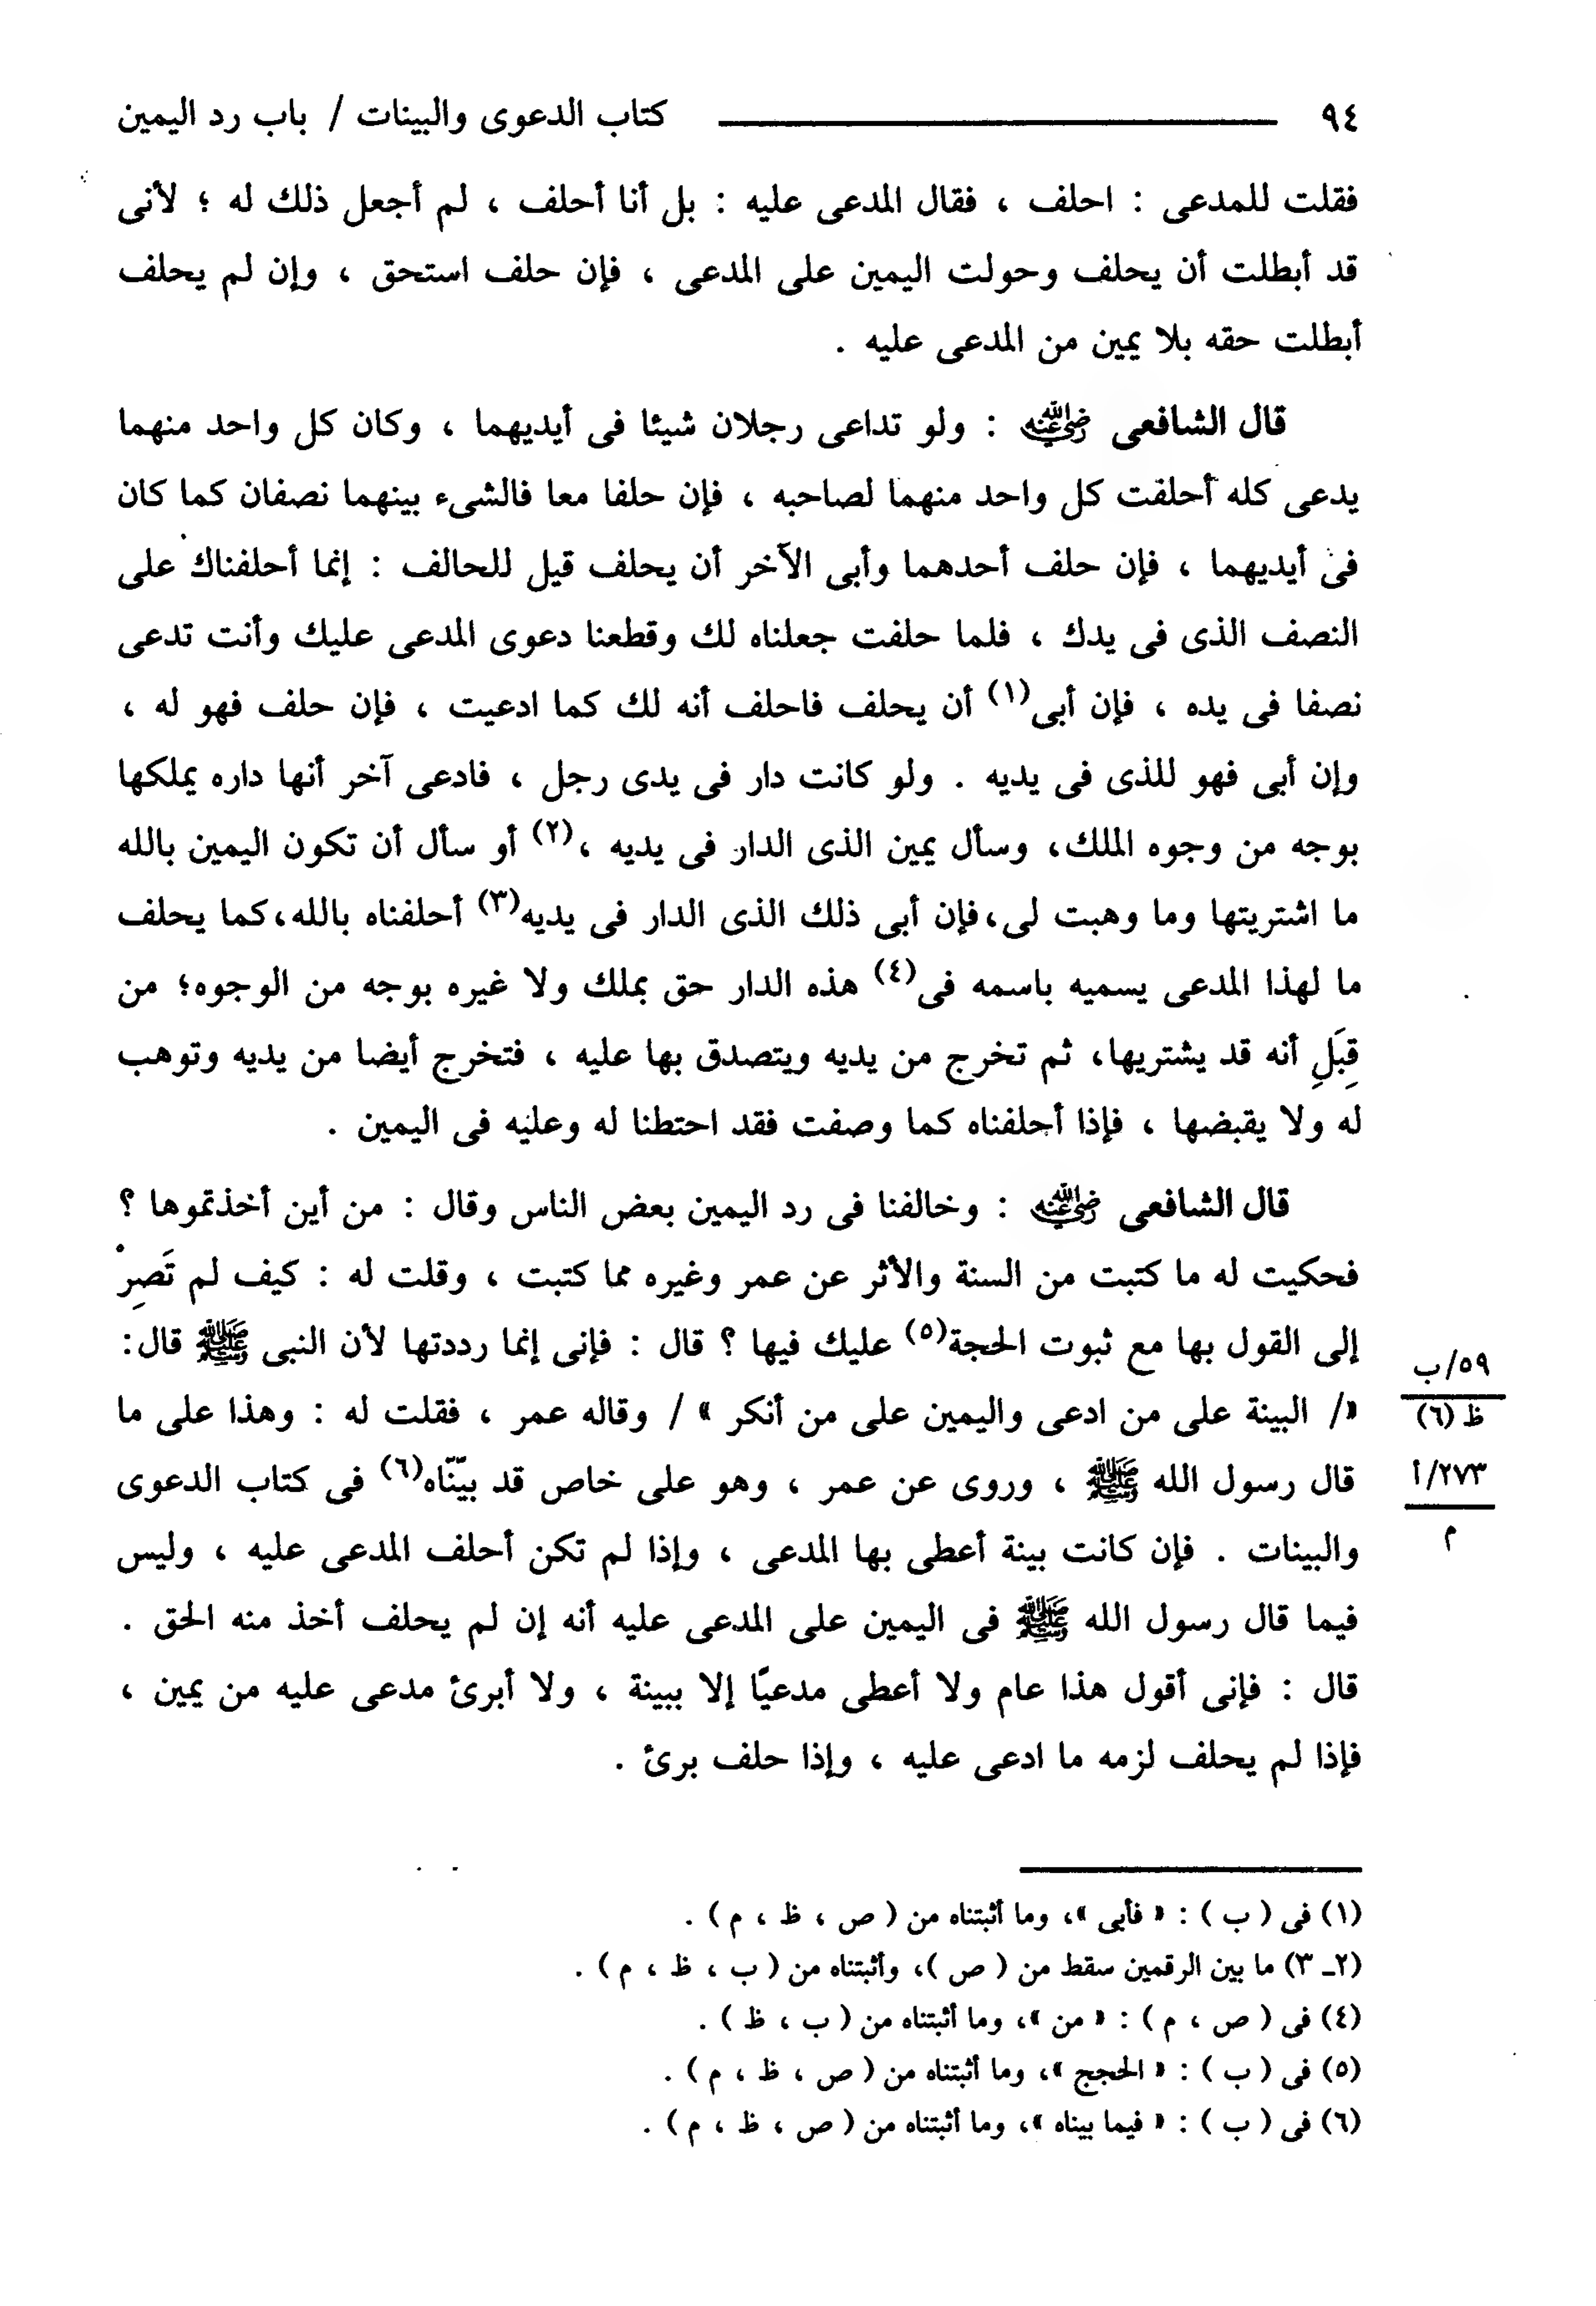 ٩٤ كتاب الدعوى والبينات / باب رد اليمين
فقلت للمدعى : احلف ، فقال المدعى عليه : بل أنا أحلف ، لم أجعل ذلك له ؛ لأنى
قد أبطلت أن يحلف وحولت اليمين على المدعى ، فإن حلف استحق ، وإن لم يحلف
أبطلت حقه بلا يمين من المدعى عليه .
قال الشافعى رضي الله عنه : ولو تداعى رجلان شيئا فى أيديهما ، وكان كل واحد منهما
يدعى كله أحلفت كل واحد منهما لصاحبه ، فإن حلفا معا فالشىء بينهما نصفان كما كان
فى أيديهما ، فإن حلف أحدهما وأبى الآخر أن يحلف قيل للحالف : إنما أحلفناك على
النصف الذى فى يدك ، فلما حلفت جعلناه لك وقطعنا دعوى المدعى عليك وأنت تدعى
نصفا فى يده ، فإن أبى(١) أن يحلف فاحلف أنه لك كما ادعيت ، فإن حلف فهو له ،
وإن أبى فهو للذى فى يديه . ولو كانت دار فى يدى رجل ، فادعى آخر أنها داره يملكها
بوجه من وجوه الملك، وسأل يمين الذى الدار فى يديه ،(٢) أو سأل أن تكون اليمين بالله
ما اشتريتها وما وهبت لى، فإن أبى ذلك الذى الدار فى يديه(٣) أحلفناه بالله، كما يحلف
ما لهذا المدعى يسميه باسمه فى(٤) هذه الدار حق بملك ولا غيره بوجه من الوجوه؛ من
قِبَلِ أنه قد يشتريها، ثم تخرج من يديه ويتصدق بها عليه ، فتخرج أيضا من يديه وتوهب
له ولا يقبضها ، فإذا أحلفناه كما وصفت فقد احتطنا له وعليه فى اليمين .
قال الشافعى رضي الله عنه : وخالفنا فى رد اليمين بعض الناس وقال : من أين أخذتموها ؟
فحكيت له ما كتبت من السنة والأثر عن عمر وغيره مما كتبت ، وقلت له : كيف لم تَصِرْ
إلى القول بها مع ثبوت الحجة(٥) عليك فيها ؟ قال : فإنى إنما رددتها لأن النبى ﷺ قال:
«/ البينة على من ادعى واليمين على من أنكر » / وقاله عمر ، فقلت له : وهذا على ما
قال رسول الله ﷺ ، وروى عن عمر ، وهو على خاص قد بيّنّاه(٦) فى كتاب الدعوى
والبينات . فإن كانت بينة أعطى بها المدعى ، وإذا لم تكن أحلف المدعى عليه ، وليس
فيما قال رسول الله ﷺ فى اليمين على المدعى عليه أنه إن لم يحلف أخذ منه الحق .
قال : فإنى أقول هذا عام ولا أعطى مدعيًا إلا ببينة ، ولا أبرئ مدعى عليه من يمين ،
فإذا لم يحلف لزمه ما ادعى عليه ، وإذا حلف برئ .
٥٩/ب
ظ (٦)
٢٧٣/أ
م
(١) فى ( ب ) : « فأبى »، وما أثبتناه من ( ص ، ظ ، م ) .
(٢ـ ٣) ما بين الرقمين سقط من ( ص )، وأثبتناه من ( ب ، ظ ، م ) .
(٤) فى ( ص ، م ) : « من »، وما أثبتناه من ( ب ، ظ ) .
(٥) فى ( ب ) : « الحجج »، وما أثبتناه من ( ص ، ظ ، م ) .
(٦) فى ( ب ) : « فيما بيناه »، وما أثبتناه من ( ص ، ظ ، م ) .